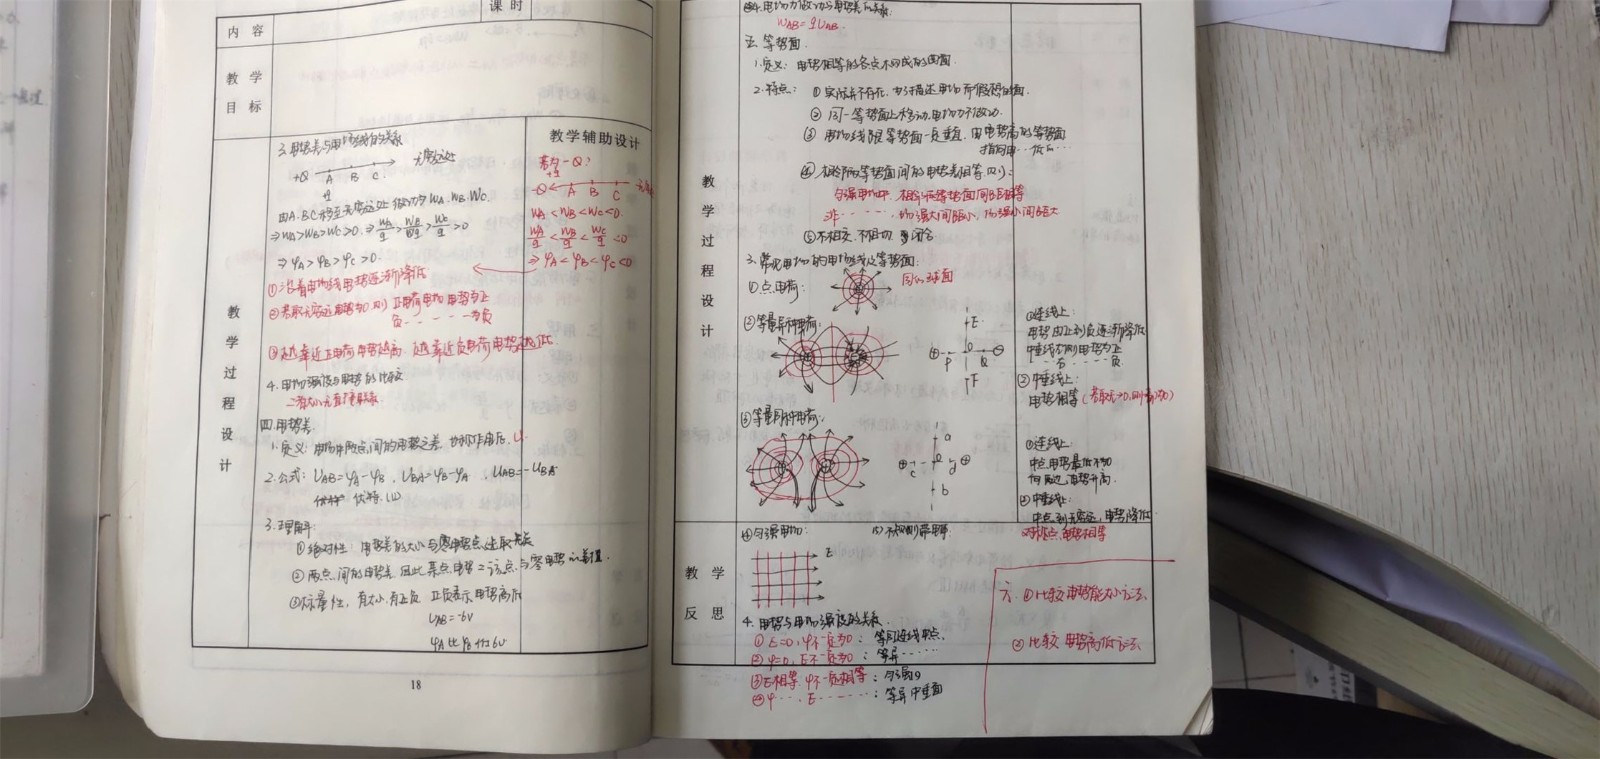 课 时
内 容
教 学
目 标
教学辅助设计
3.电势差与电场线的关系
+Q A B C 无穷远处
+q
由A.BC移至无穷远处 做功为WA.WB.WC
⇒WA>WB>WC>0.⇒WA/q>WB/q>WC/q>0
⇒φA>φB>φC>0.
①沿着电场线电势逐渐降低
②若取无穷远电势为0.则 正电荷电场 电势为正
负······为负
③越靠近正电荷电势越高.越靠近负电荷电势越低
4.电场强度与电势的比较
二者大小无直接联系
若为-Q?
+q
-Q A B C
WA<WB<WC<0
WA/q<WB/q<WC/q<0
⇒φA<φB<φC<0
教
学
过
程
设
计
四.电势差
1.定义:电场中两点间的电势之差.也叫作电压.U
2.公式:UAB=φA-φB.UBA=φB-φA.UAB=-UBA
伏特.(V)
3.理解:
①绝对性.电势差的大小与零电势点选取无关
②两点间的电势差.因此某点电势=该点与零电势的差值.
③标量性.有大小.有正负 正负表示电势高低
UAB=-6V
φA比φB低6V
18
4.电场力做功与电势差的关系:
WAB=qUAB
五.等势面.
1.定义:电势相等的各点构成的曲面.
2.特点:①实际并不存在.为了描述电场而假想的面.
②同一等势面上移动.电场力不做功.
③电场线跟等势面一定垂直.由电势高的等势面
指向电··低的··
④相邻两等势面间的电势差相等.则:
匀强电场中.相邻等势面间距相等
非······.场强大间距小.场强小间距大
⑤不相交.不相切.
教
学
过
程
设
计
3.常见电场的电场线及等势面:
①点电荷: 同心球面
②等量异种电荷:
E
⊕ P O Q ⊖
F
①连线上:
电势由正到负逐渐降低
中垂线左侧电势为正
····右······负
②中垂线上:
电势相等
③等量同种电荷:
a
⊕ c O d ⊕
b
①连线上:
中点电势最低不为0
向两边.电势升高.
②中垂线上:
中点到无穷远.电势降低
对称点.电势相等
教 学
反 思
④匀强电场:
E
4.电势与电场强度的关系.
①E=0,φ不一定为0:等同连线中点.
②φ=0,E不一定为0:等异·····
③E相等.φ不一定相等:匀强
④φ····E·······:等异中垂面
六.①比较电势能大小方法
②比较电势高低方法